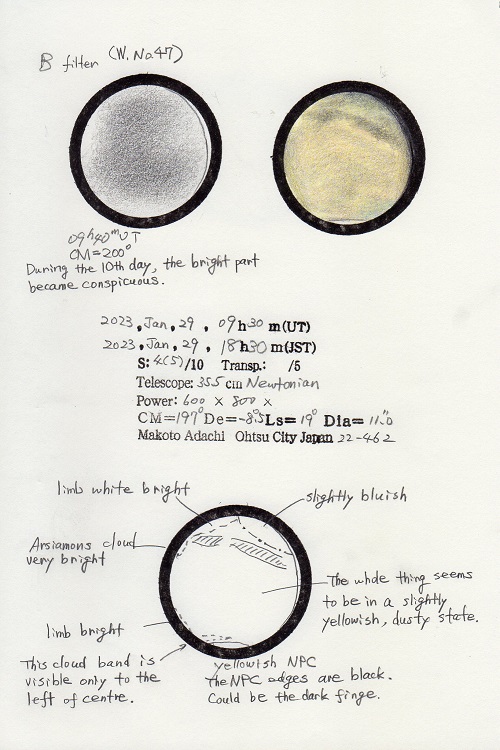 B filter (W. No.47)
09h40m UT
CM=200°
During the 10th day, the bright part
became conspicuous.
2023, Jan, 29, 09h30m(UT)
2023, Jan, 29, 18h30m(JST)
S: 4(5)/10 Transp.: /5
Telescope: 355 cm Newtonian
Power: 600 × 800 ×
CM=197° De=-8.5 Ls=19° Dia=11."0
Makoto Adachi Ohtsu City Japan 22-462
limb white bright
slightly bluish
Arsiamons cloud
very bright
The whole thing seems
to be in a slightly
yellowish, dusty state.
limb bright
This cloud band is
visible only to the
left of centre.
yellowish NPC
The NPC edges are black.
Could be the dark finge.